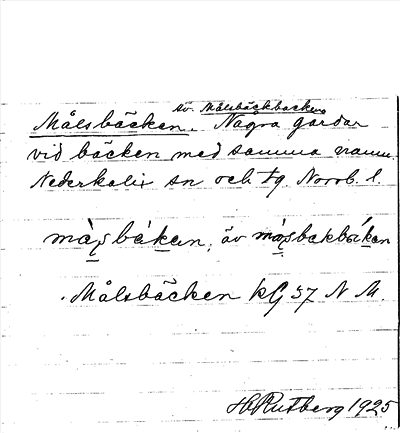 äv. Målsbäckbacken
Målsbäcken. Några gårdar
vid bäcken med samma namn.
Nederkalix sn och tg. Norrb. l.
äv
Målsbäcken kG 37 N M.
H Rutberg 1925